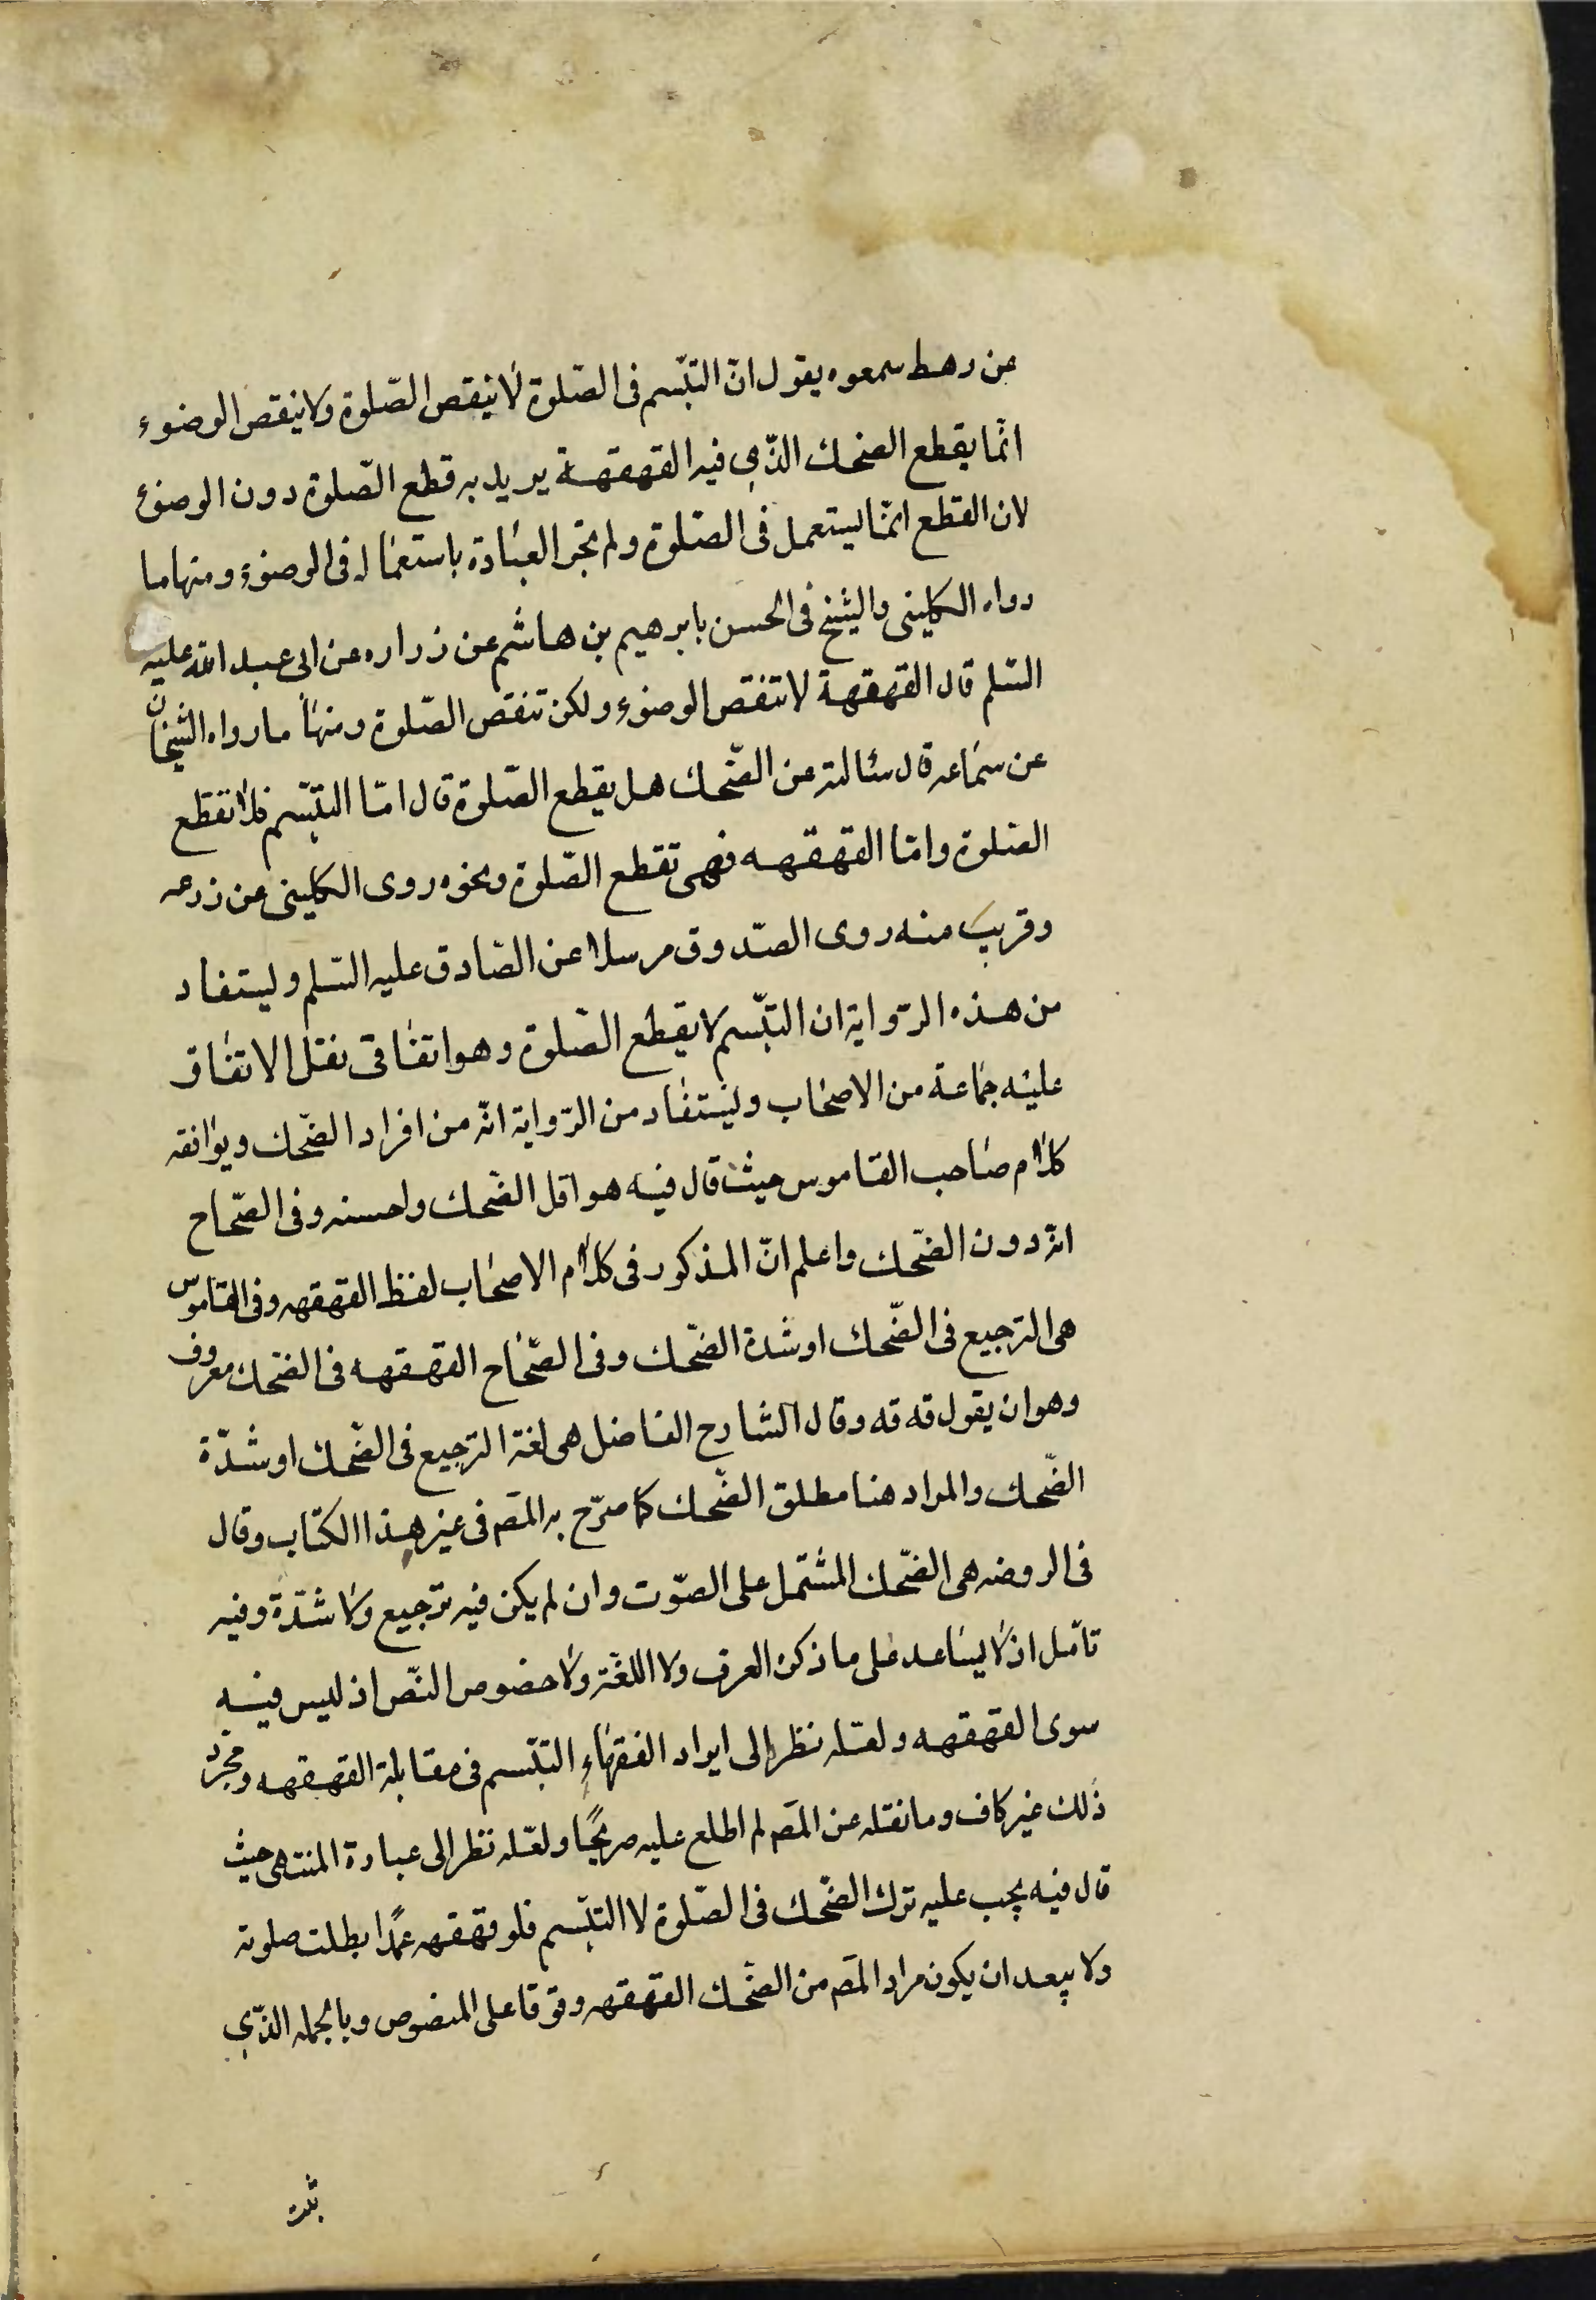 عن رهط سمعوه يقول انّ التبّسم فى الصّلوة لا ينقص الصّلوة ولا ينقص الوضوء
انّما يقطع الضحك الذّى فيه القهقهة يريد به قطع الصّلوة دون الوضوء
لان القطع انّما يستعمل فى الصّلوة ولم تجر العبادة باستعماله فى الوضوء ومنها ما
رواه الكلينى والشيخ فى الحسن بابرهيم بن هاشم عن زراره عن ابى عبد الله عليه
السّلم قال القهقهة لا تنقص الوضوء ولكن تنقص الصّلوة ومنها ما رواه الشيخان
عن سماعه قال سئالته عن الضّحك هل يقطع الصّلوة قال امّا التبّسم فلا تقطع
الصّلوة وامّا القهقهه فهى تقطع الصّلوة ونحوه روى الكلينى عن زرعه
وقريب منه روى الصّدوق مرسلا عن الصّادق عليه السّلم وليستفاد
من هذه الرّواية ان التبّسم لا يقطع الصّلوة وهو اتفاقى نقل الاتفاق
عليه جماعة من الاصحاب وليستفاد من الرّواية انّه من افراد الضّحك ويوافقه
كلام صاحب القاموس حيث قال فيه هو اقل الضّحك واحسنه وفى الصّحاح
انّه دون الضّحك واعلم انّ المذكور فى كلام الاصحاب لفظ القهقهه وفى القاموس
هى الترجيع فى الضّحك او شدة الضّحك وفى الصّحاح القهقهه فى الضّحك معروف
وهو ان يقول قه قه وقال الشارح الفاضل هى لغة الترجيع فى الضّحك او شدّة
الضّحك والمراد هنا مطلق الضّحك كما صرّح به المصَ فى غير هذا الكتاب وقال
فى الروضه هى الضّحك المشتمل على الصّوت وان لم يكن فيه ترجيع ولا شدّة وفيه
تامّل اذ لا يساعد على ما ذكره العرف ولا اللغة ولا خضوص النّص اذ ليس فيه
سوى القهقهه ولعّله نظر الى ايراد الفقهاء التبّسم فى مقابلة القهقهه ومجرّد
ذلك غير كاف وما نقله عن المصَ لم اطلع عليه صريحًا ولعّله نظر الى عبارة المنتهى حيث
قال فيه يجب عليه ترك الضّحك فى الصّلوة لا التبّسم فلو قهقهه عمدًا بطلت صلوته
ولا يبعد ان يكون مراد المصَ من الضّحك القهقهه وقوفا على المنصوص وبالجمله الذّى